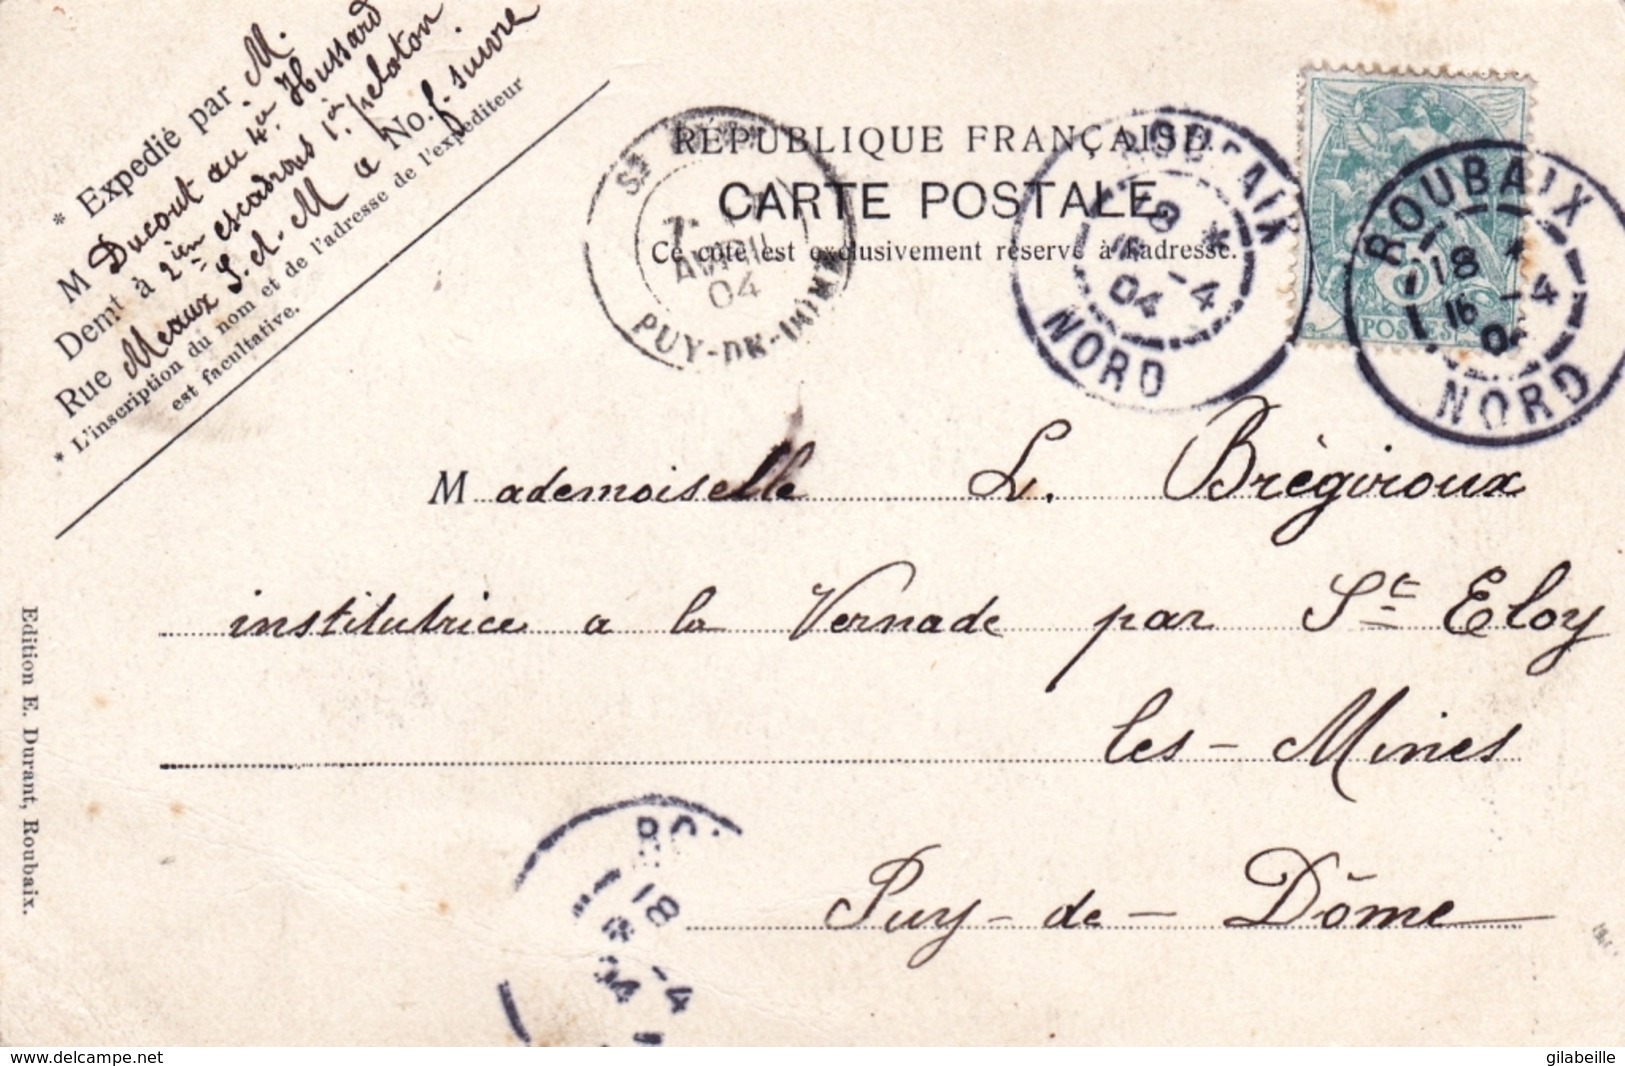 * Expédié par M.
M Ducout au 4ème Hussard
Demt à 2ièm escadrons 1er peloton
Rue Meaux S. et. M a No. f. suivre
* L'inscription du nom et de l'adresse de l'expéditeur
est facultative.
RÉPUBLIQUE FRANÇAISE.
CARTE POSTALE
Ce côté est exclusivement réservé à l'adresse.
AVRIL
04
PUY-DE-DOME
ROUBAIX
18 *
16 -4
04
NORD
ROUBAIX
18 *
16 -4
NORD
POSTES
Mademoiselle L. Brégiroux
institutrice a la Vernade par St Eloy
les-Mines
Puy-de-Dôme
18
-4
04
Edition E. Durant, Roubaix.
www.delcampe.net
gilabeille